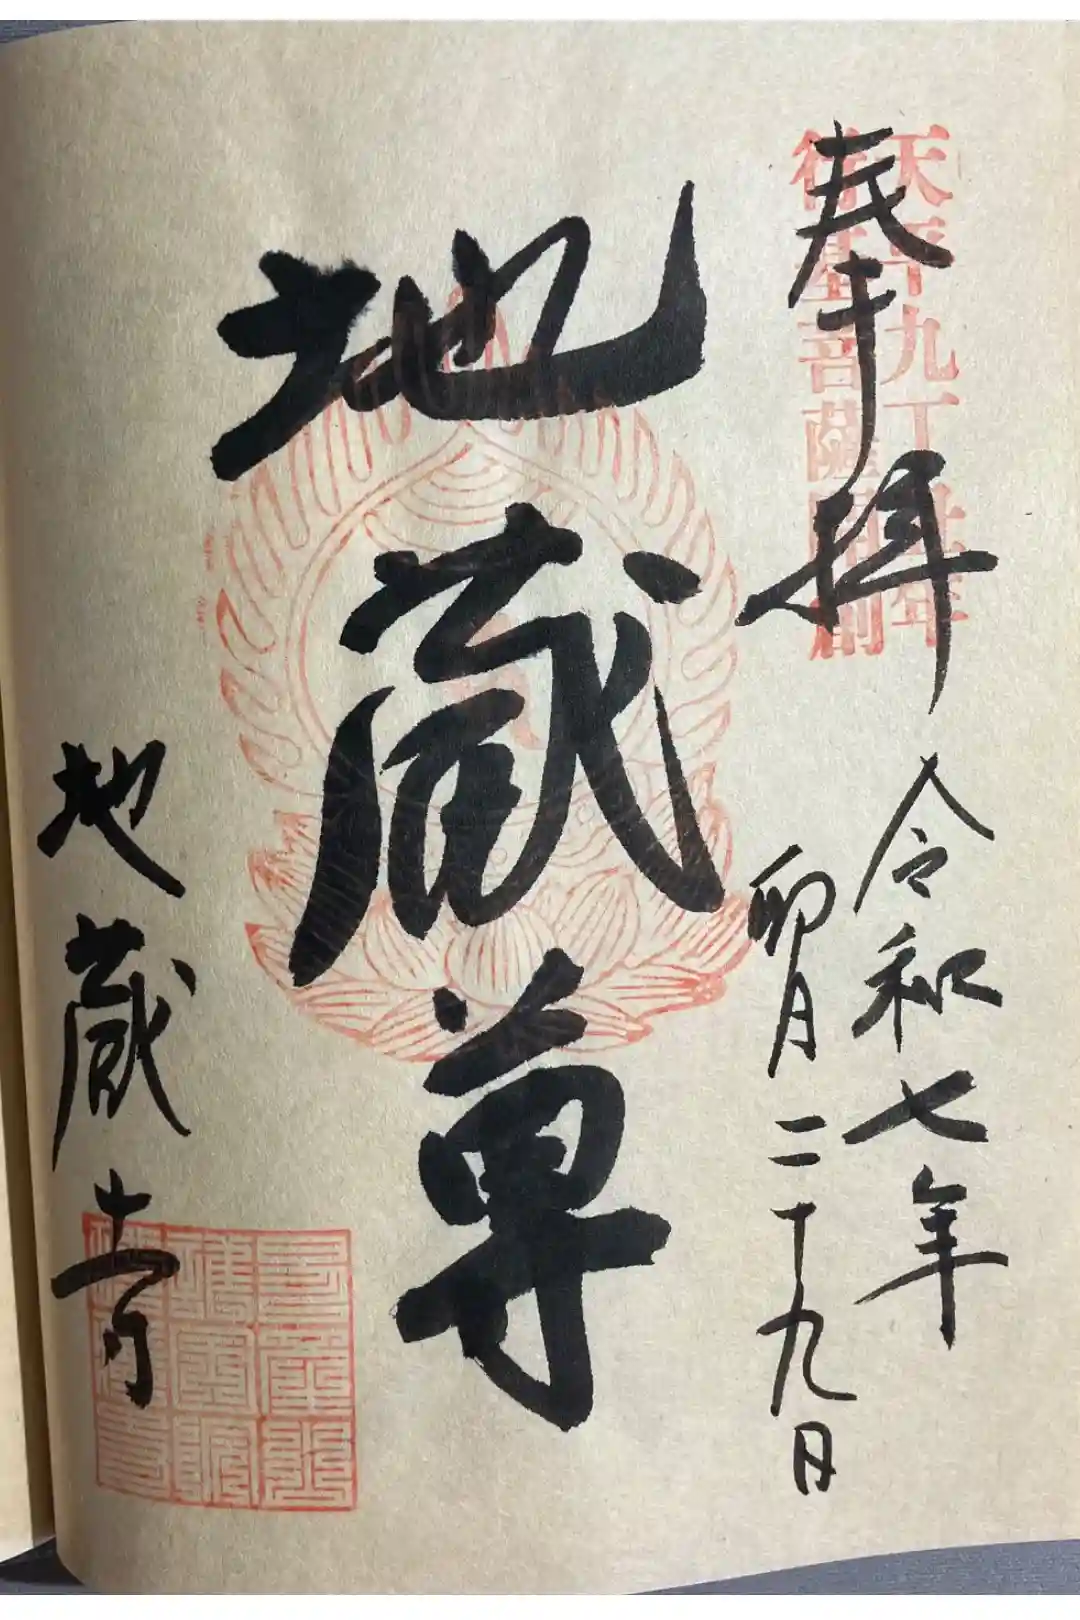 奉拝
天平九丁丑年
行基菩薩開創
令和七年
卯月二十九日
地蔵尊
地蔵寺